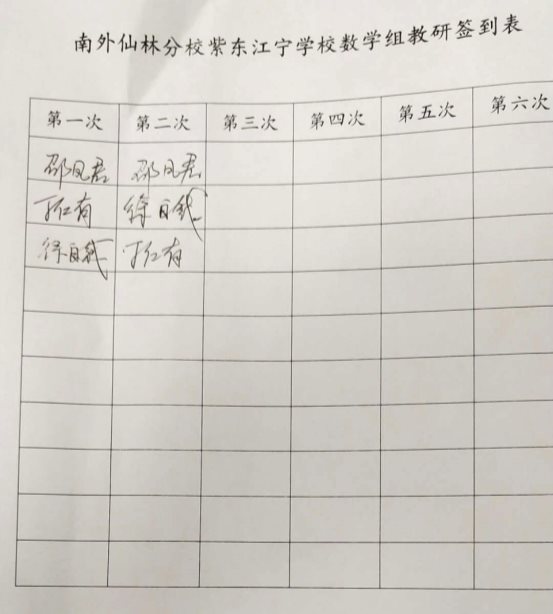 南外仙林分校紫东江宁学校数学组教研签到表
第一次 第二次 第三次 第四次 第五次 第六次
邵凤君 邵凤君
有 徐自钱
徐自钱 有